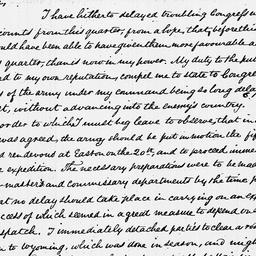 I have hitherto delayed troubling Congress w
counts from this quarter, from a hope, that, before this
uld have been able to have given them more favourable a
quarter, than is now in my power. My duty to the pub
d to my own reputation, compel me to state to Congre
of the army under my command being so long dela
t, without advancing into the enemy's country.
order to which I must beg leave to observe, that in
was agreed, the army should be put in motion the fi
d rendevous at Easton on the 20th, and to proceed immed
e expedition. The necessary preparations were to be mad
masters and commissary departments by the time p
at no delay should take place in carrying on an exp
cess of which seemed in a great measure to depend on
spatch. I immediately detached parties to clear a ro
n to Wyoming, which was done in season, and migh